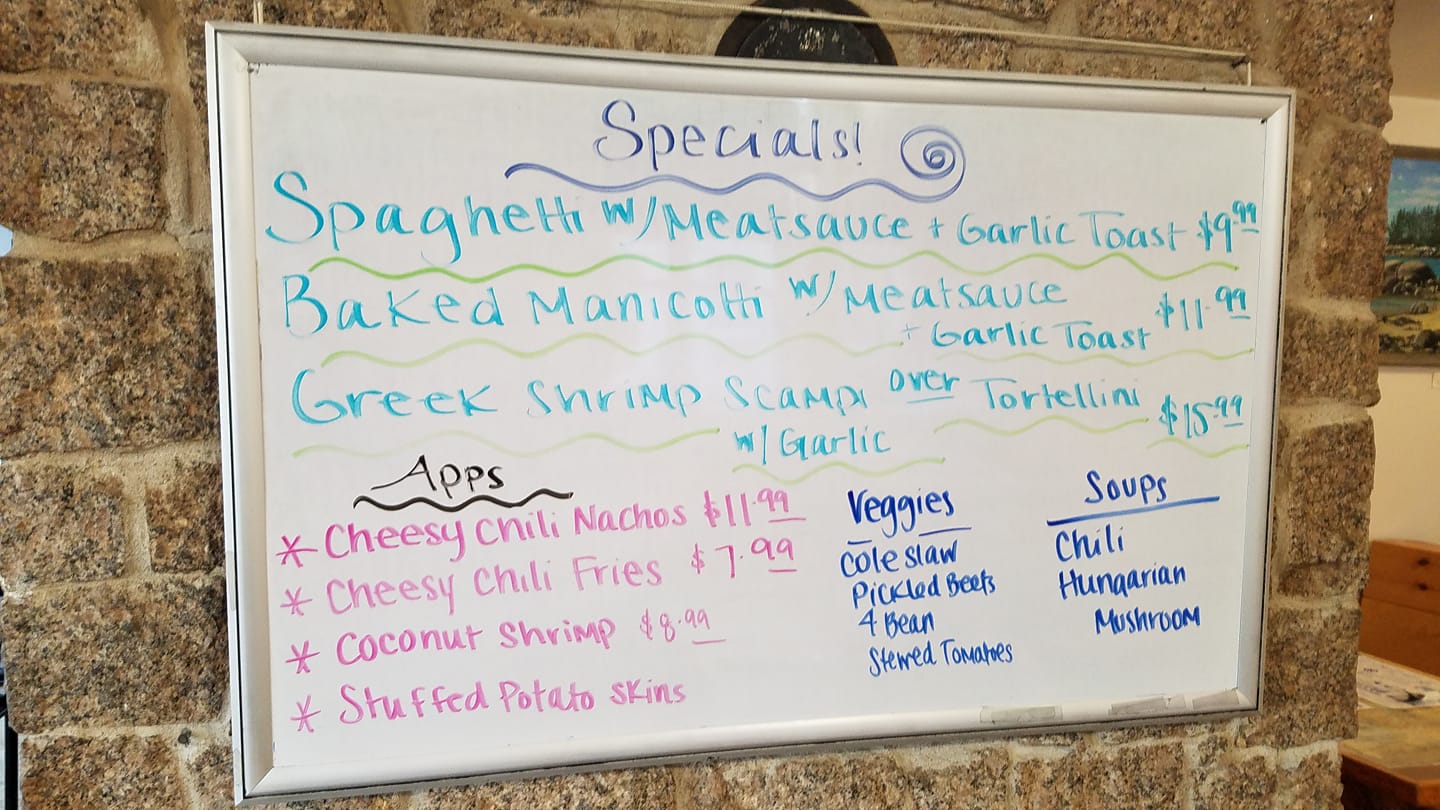 Specials!
Spaghetti w/ Meatsauce + Garlic Toast $9.99
Baked Manicotti w/ Meatsauce
+ Garlic Toast $11.99
Greek Shrimp Scampi over Tortellini $15.99
w/ Garlic
Apps
* Cheesy Chili Nachos $11.99
* Cheesy Chili Fries $7.99
* Coconut Shrimp $8.99
* Stuffed Potato Skins
Veggies
Cole Slaw
Pickled Beets
4 Bean
Stewed Tomatoes
Soups
Chili
Hungarian
Mushroom